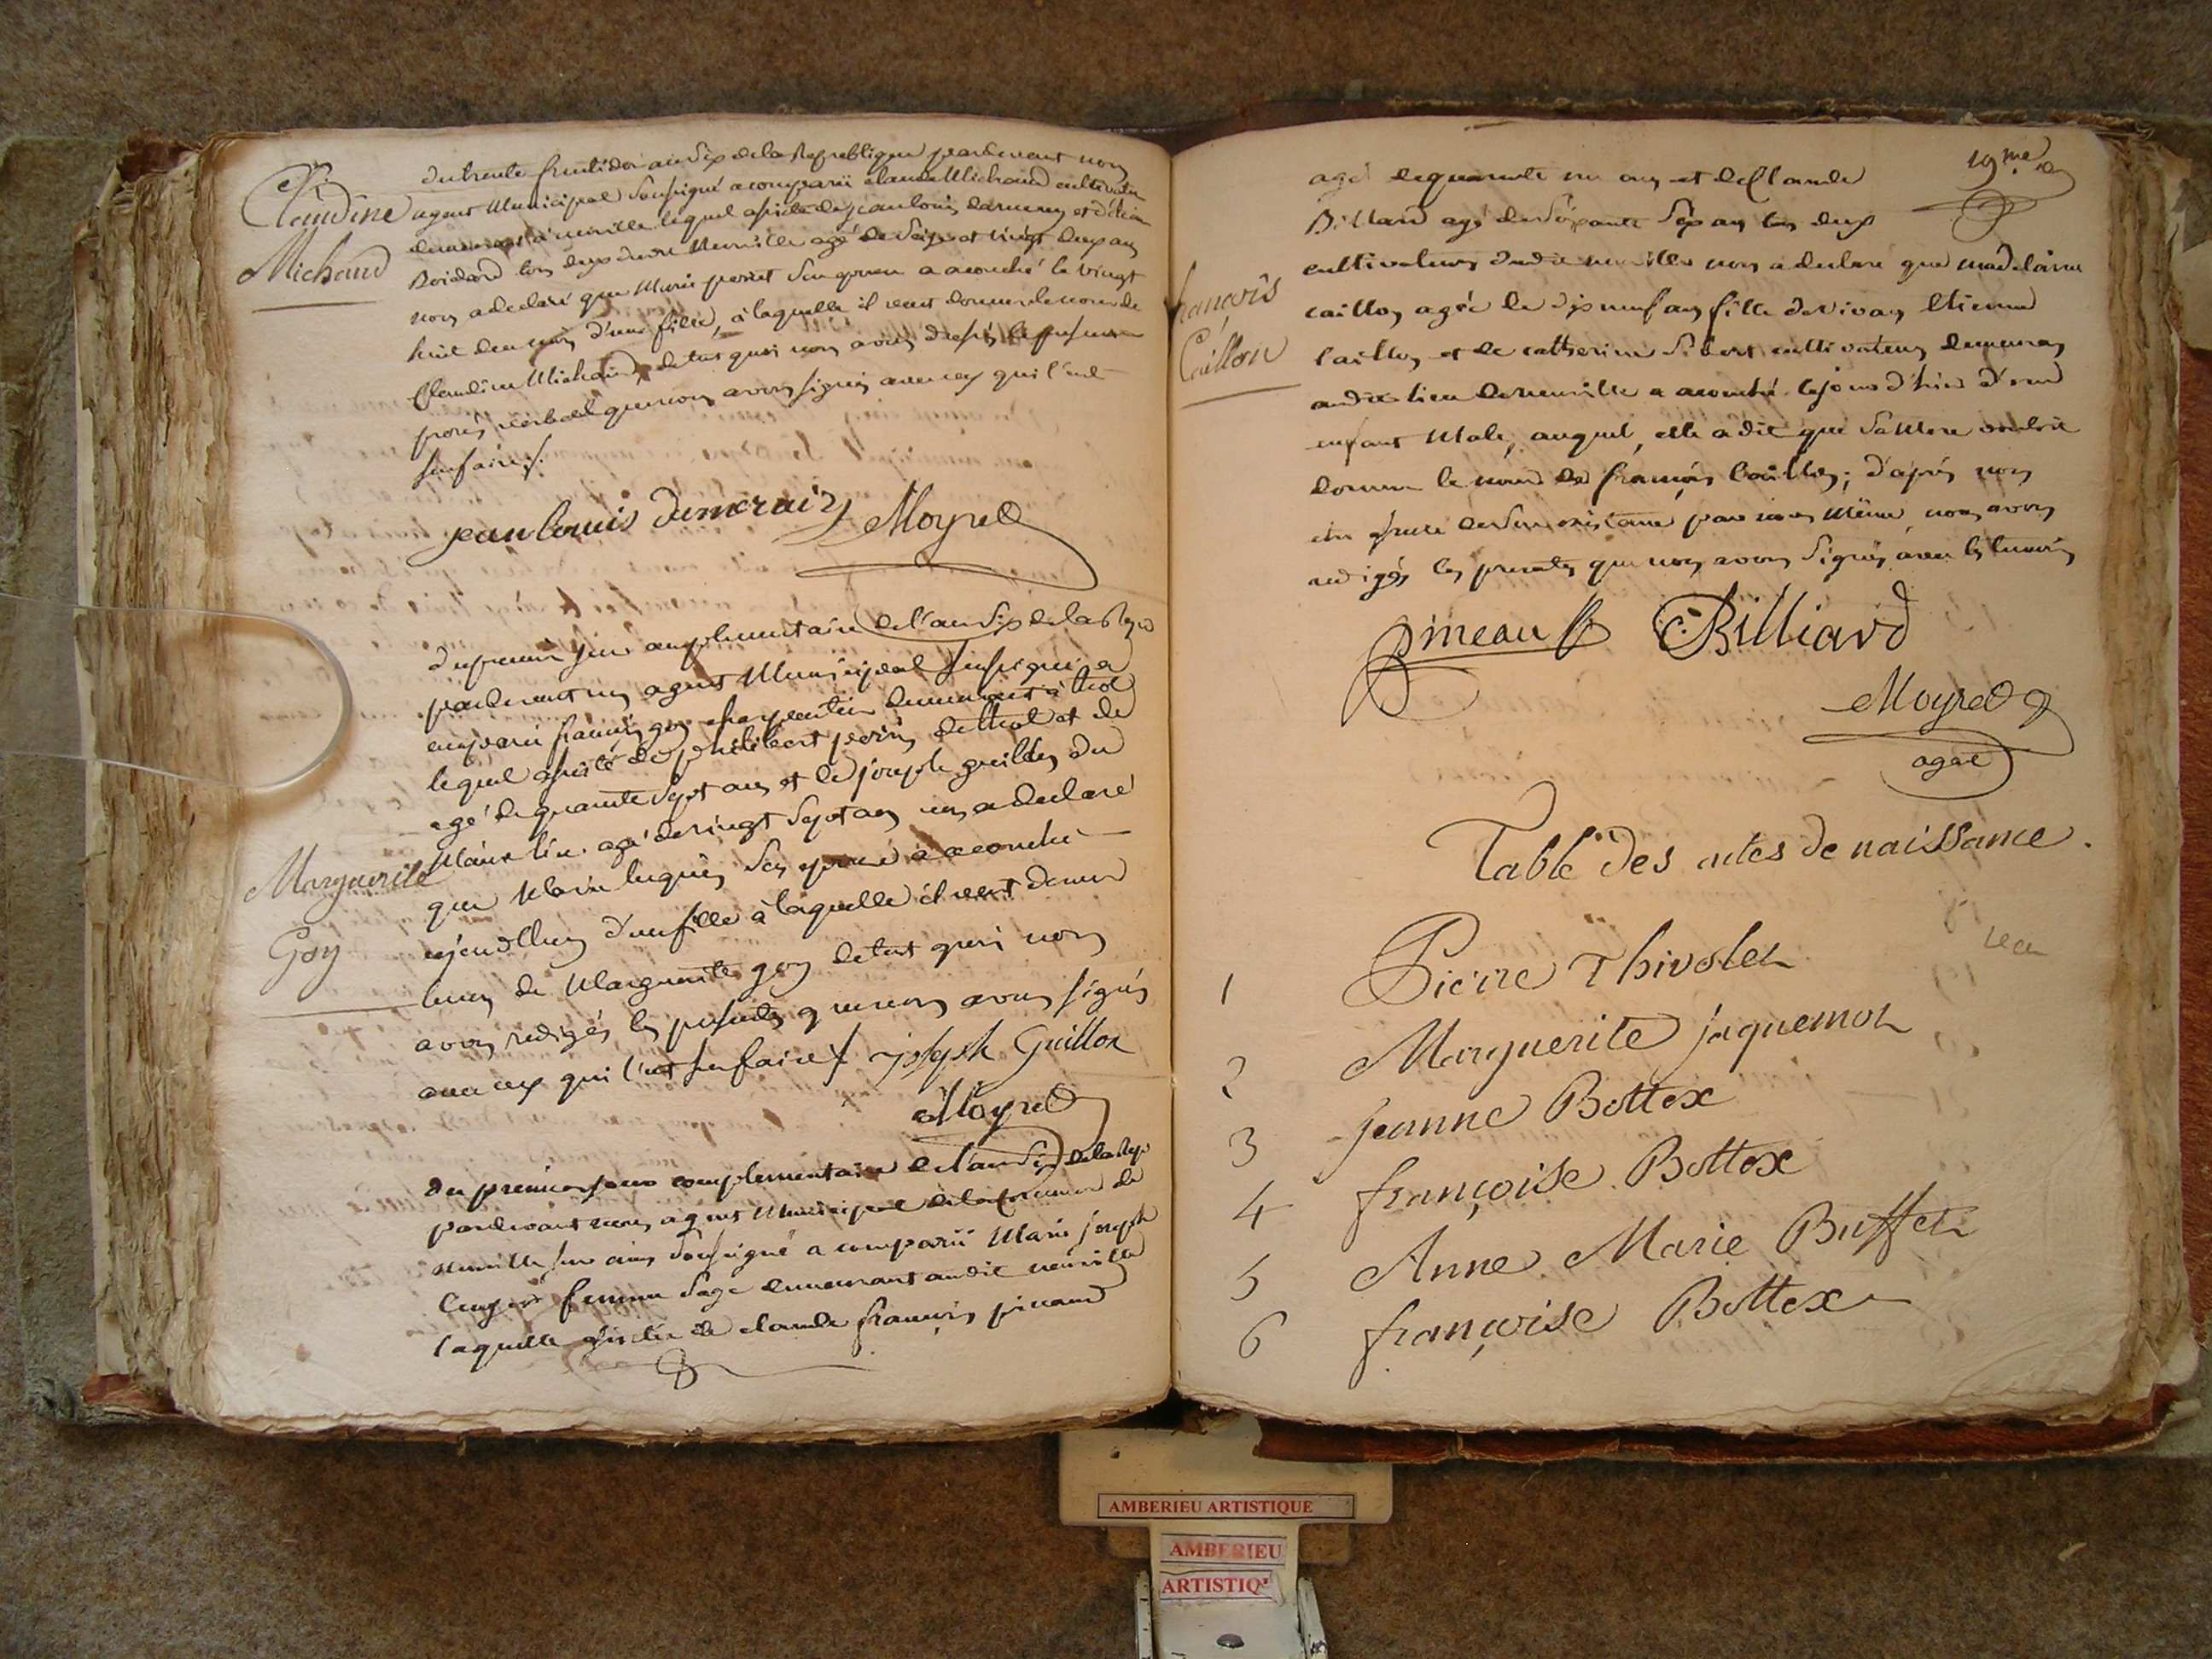 Claudine
Michaud
Du trente fructidor an six de la Republique pardevant nous
agent Municipal Soussigné a comparu claude Michaud cultivateur
demeurant à neuville lequel assisté de jean louis
tous deux de
nous a declaré que Marie son epouse a acouché le vingt
huit du mois d'une fille, à laquelle il veut donner le nom de
Claudine Michaud, de tout quoi nous avons dressés le present
procés verbal que nous avons signés avec ceux qui l'ont
su faire
jean louis Moyret
Du premier jour complementaire de l'an six de la Rep
pardevant nous agent Municipal soussigné a
comparu françois goy charpentier demeurant à thol
lequel assisté de philibert perrin de thol et de
agé de quarante Sept ans et de joseph guillon du
même lieu agé de vingt Sept ans nous a declaré
que Marie Son epouse a acouché
aujourdhuy d'une fille à laquelle il veut donner
le nom de Marguerite goy de tout quoi nous
avons redigés les presentes que nous avons signés
avec ceux qui l'ont su faire joseph Guillon
Marguerite
Goy
Moyret
du premier jour complementaire de l'an Six de la Rep
pardevant nous agent Municipal de la commune de
neuville sur ains Soussigné a comparu Marie joseph
femme Sage demeurant audit neuville
laquelle assistée de claude françois pineaud
19me
agé de quarante un ans et de Claude
Billard agé de Soixante Six ans tous deux
cultivateurs dudit neuville nous a declaré que madelaine
caillon agée de dix neuf ans fille de vivan Etienne
Caillon et de catherine cultivateurs demeurans
audit lieu de neuville a acouché le jour d'hier d'un
enfant Male, auquel, elle a dit que Sa Mere vouloit
donner le nom de françois Caillon; d'aprés nous
être assuré de Son existance par nous Même, nous avons
redigés les presentes que nous avons Signés avec les temoins
françois
Caillon
pineau C. Billiard
Moyret
agat
Table des actes de naissance.
1 Pierre Thivolet
2 Marguerite jaquemot
3 Jeanne Bottex
4 françoise Bottex
5 Anne Marie Buffet
6 françoise Bottex
AMBERIEU ARTISTIQUE
AMBERIEU
ARTISTIQ